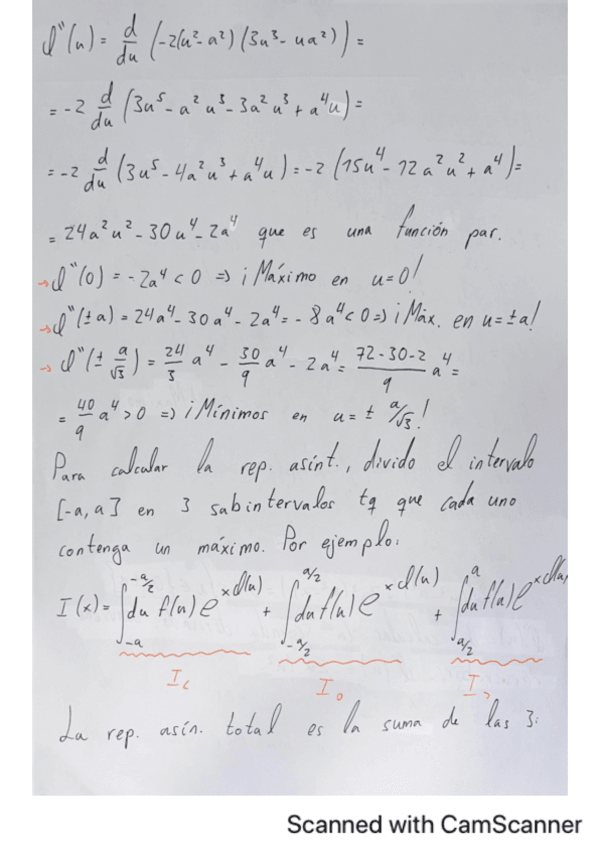 φ''(u) = d/du (-2(u²-a²)(3u³-ua²)) =
= -2 d/du (3u⁵ - a²u³ - 3a²u³ + a⁴u) =
= -2 d/du (3u⁵ - 4a²u³ + a⁴u) = -2 (15u⁴ - 12a²u² + a⁴) =
= 24a²u² - 30u⁴ - 2a⁴ que es una función par.
→ φ''(0) = -2a⁴ < 0 => ¡Máximo en u=0!
→ φ''(±a) = 24a⁴ - 30a⁴ - 2a⁴ = -8a⁴ < 0 => ¡Máx. en u=±a!
→ φ''(± a/√3) = 24/3 a⁴ - 30/9 a⁴ - 2a⁴ = (72-30-2)/9 a⁴ =
= 40/9 a⁴ > 0 => ¡Mínimos en u = ± a/√3!
Para calcular la rep. asínt., divido el intervalo
[-a, a] en 3 subintervalos tq que cada uno
contenga un máximo. Por ejemplo:
I(x) = ∫_{-a}^{-a/2} du f(u) e^{xφ(u)} + ∫_{-a/2}^{a/2} du f(u) e^{xφ(u)} + ∫_{a/2}^{a} du f(u) e^{xφ(u)}
I< I₀ I>
La rep. asín. total es la suma de las 3:
Scanned with CamScanner